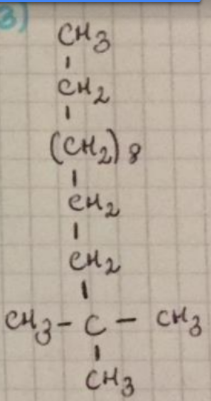 3)
CH3
CH2
(CH2)8
CH2
CH2
CH3-C-CH3
CH3